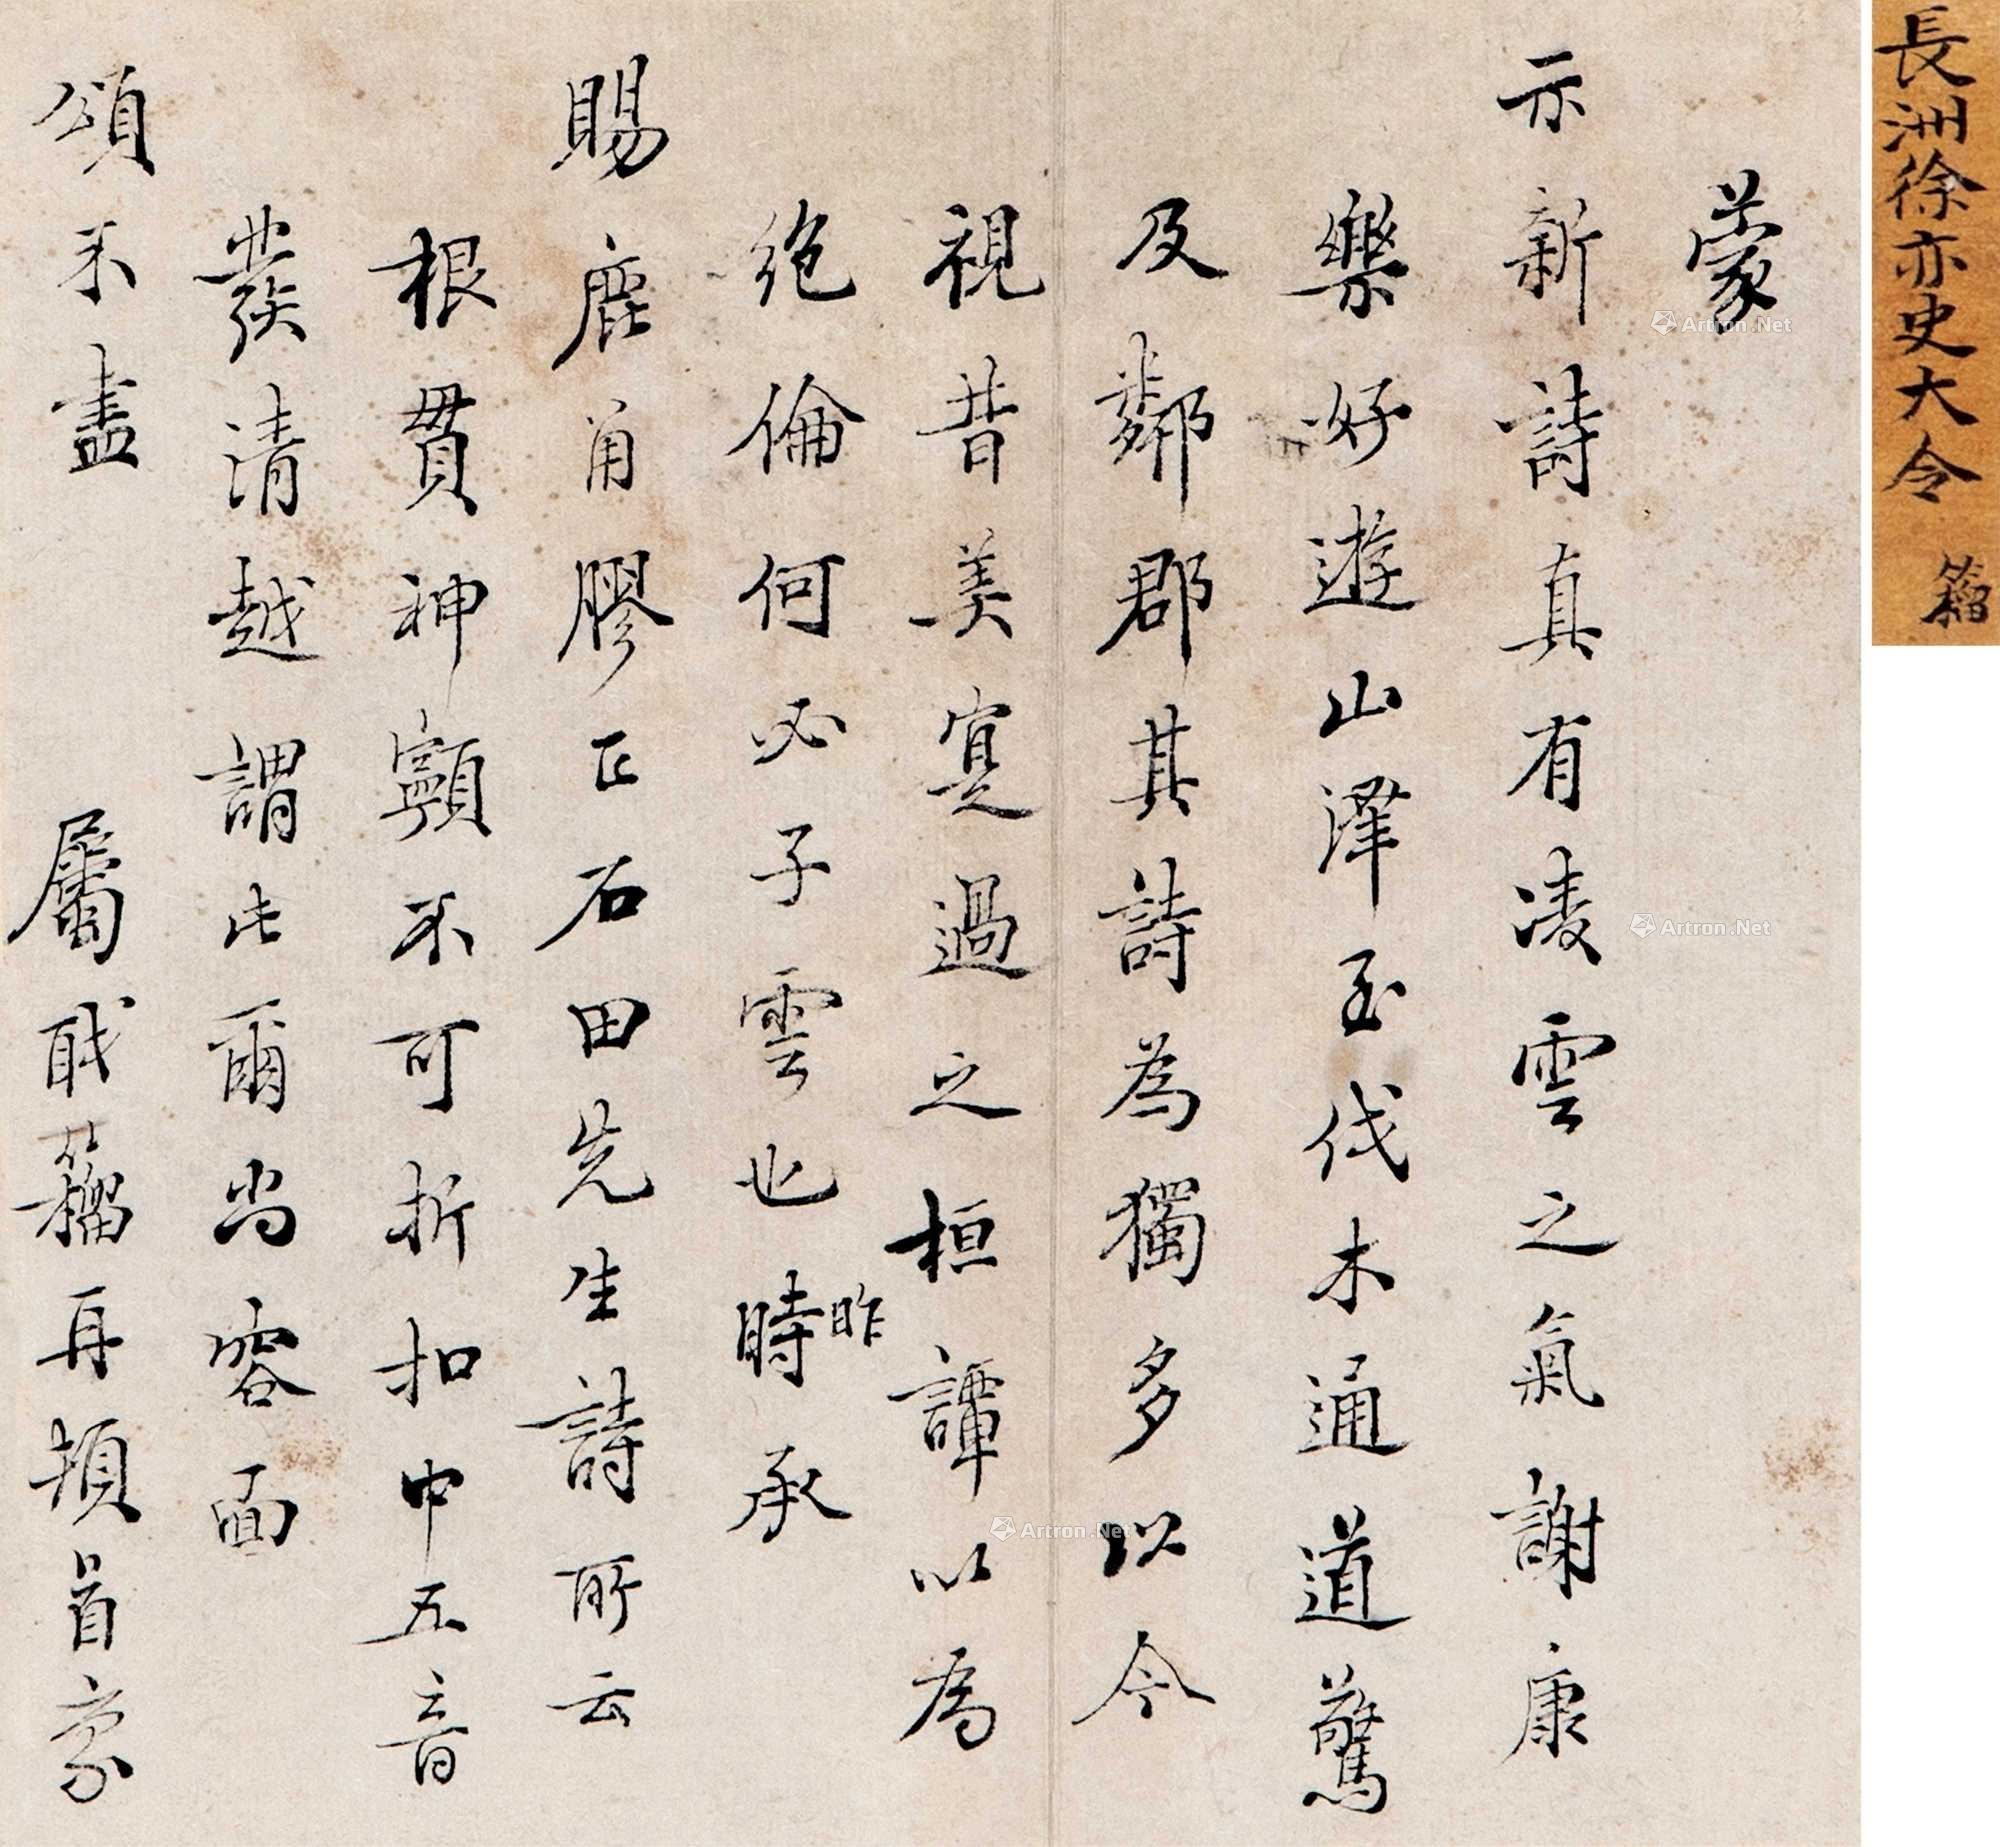 長洲徐亦史大令 籀
蒙
示新詩真有凌雲之氣謝康
樂好遊山澤至伐木通道驚
及鄰郡其詩為獨多以今
視昔美寔過之桓譚以為
絶倫何必子雲也昨時承
賜鹿角膠正石田先生詩所云
根貫神顱不可折扣中五音
發清越謂此爾尚容面
頌不盡 屬戝籀再頓首
Artron.Net
Artron.Net
Artron.Net